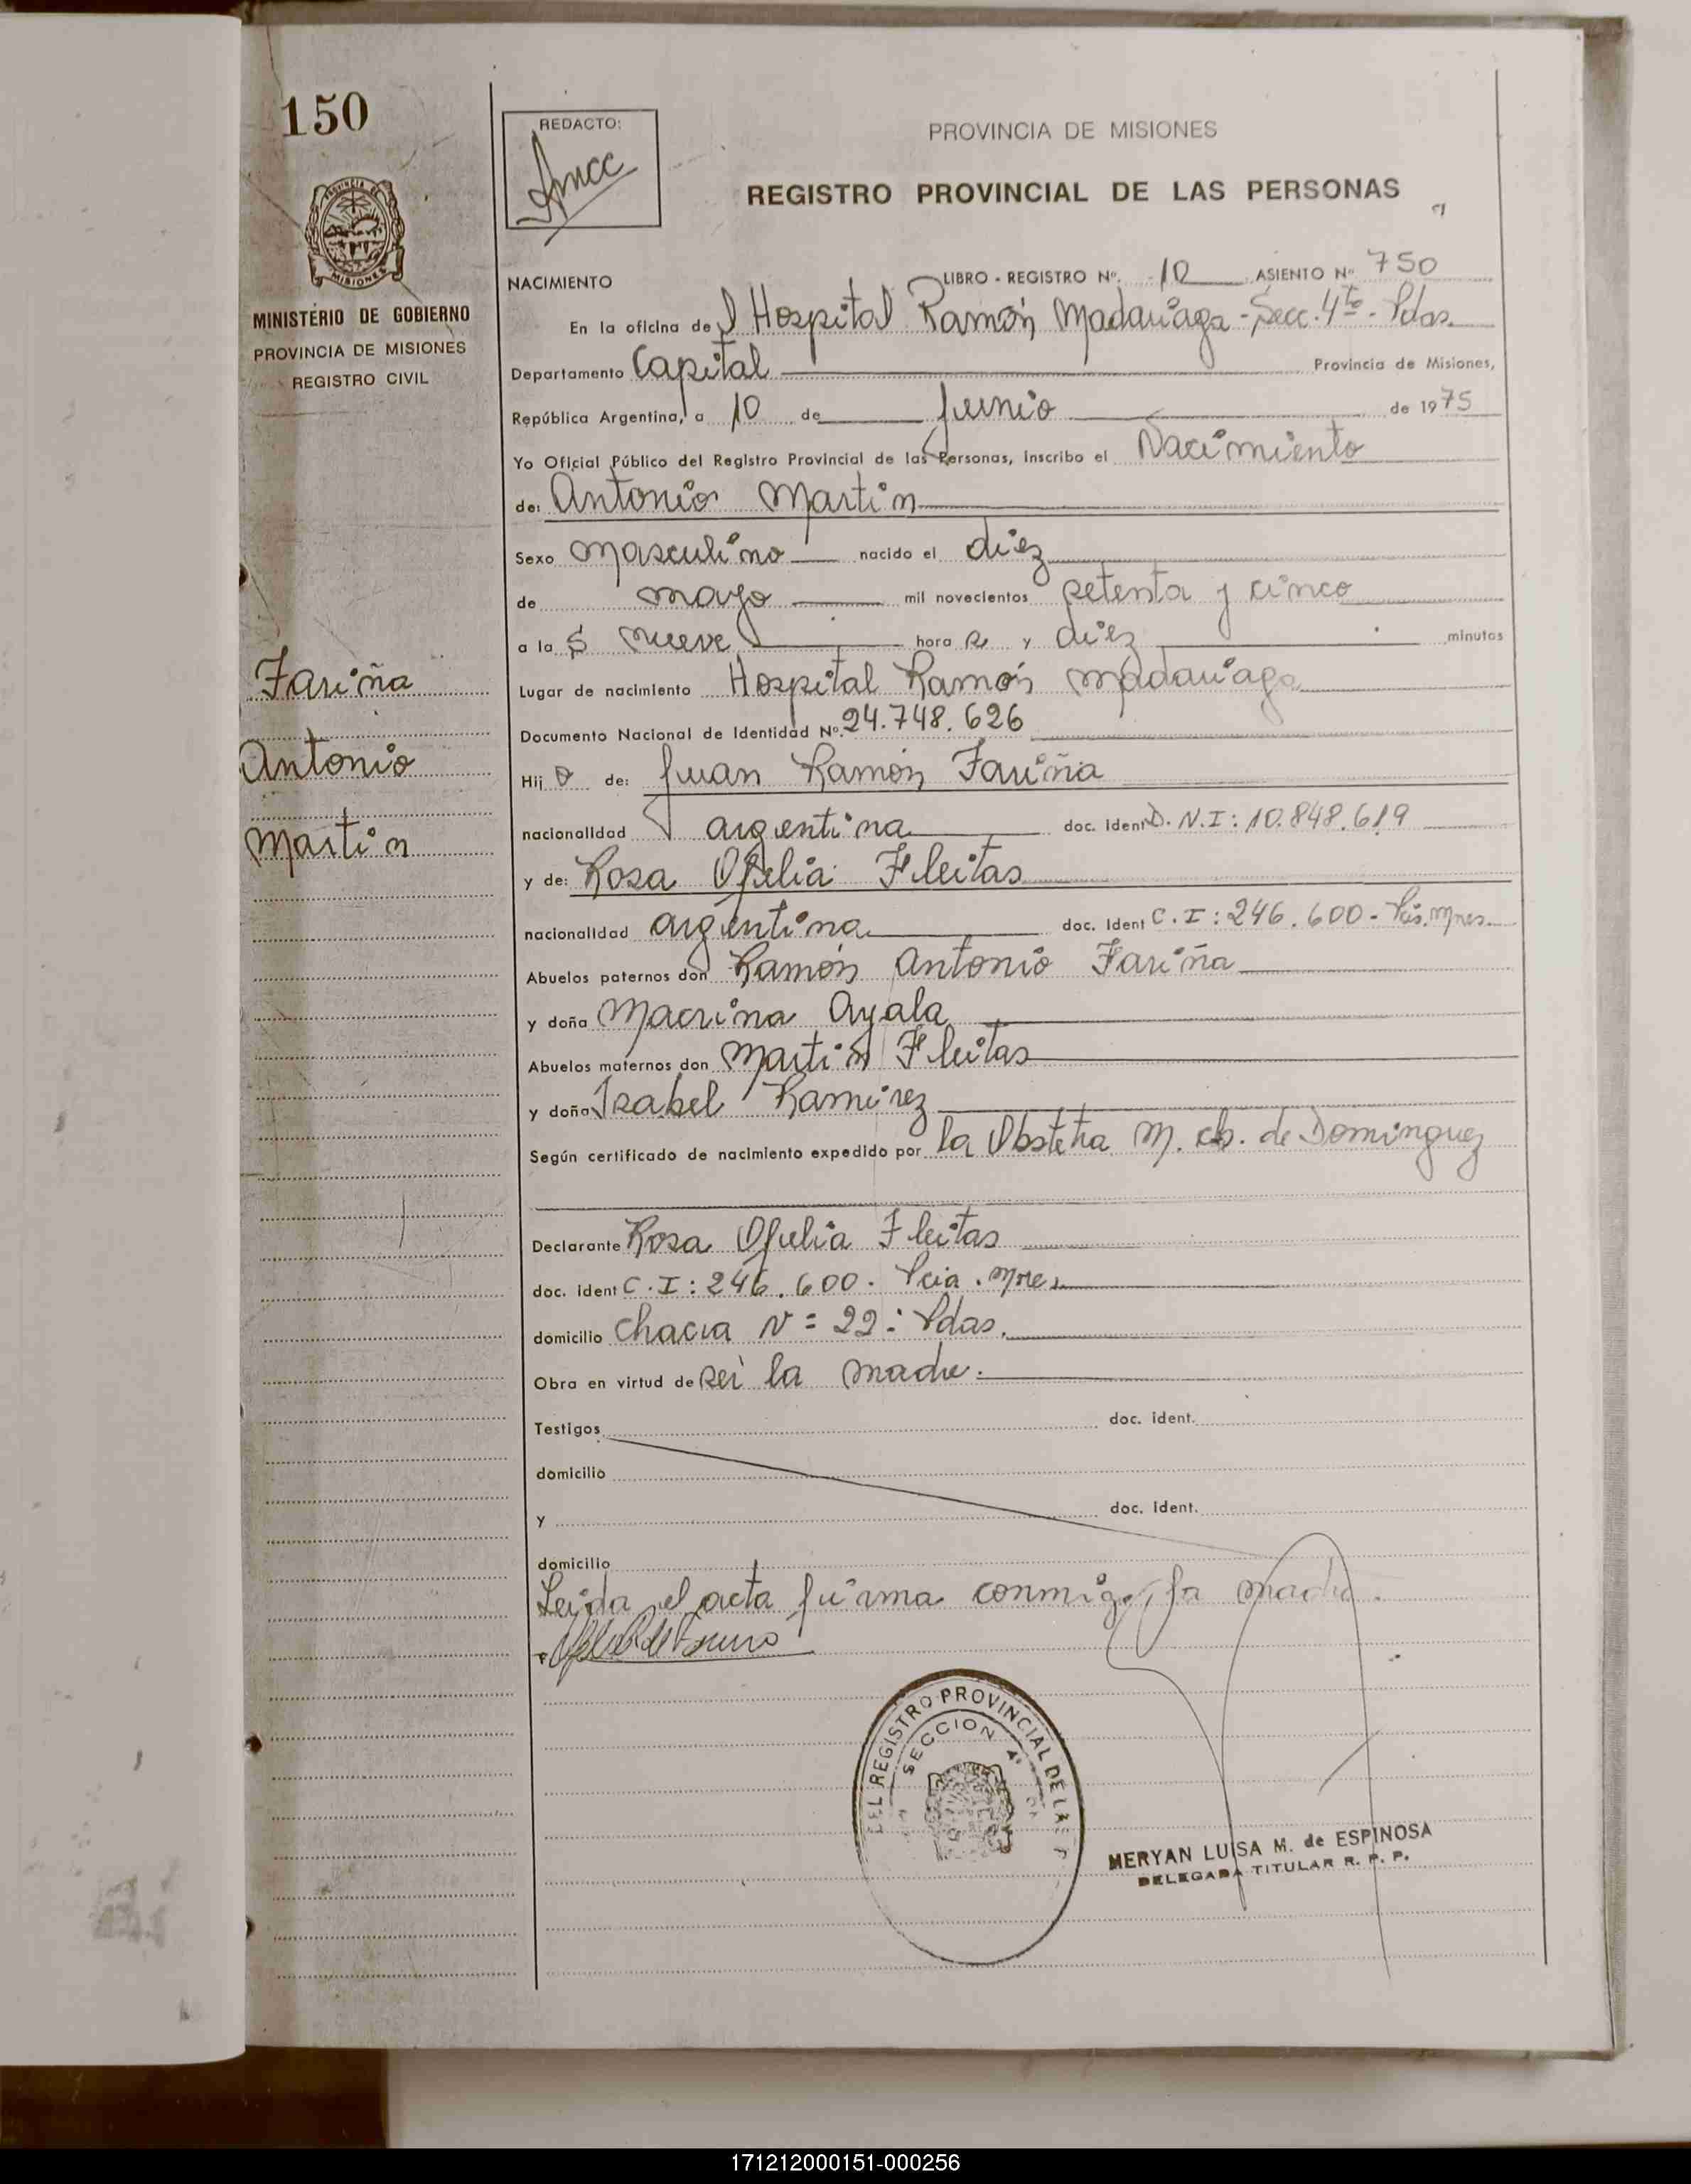 150
REDACTO:
PROVINCIA DE MISIONES
REGISTRO PROVINCIAL DE LAS PERSONAS
MISIONES
MINISTERIO DE GOBIERNO
PROVINCIA DE MISIONES
REGISTRO CIVIL
NACIMIENTO LIBRO - REGISTRO Nº. 10 ASIENTO Nº 750
En la oficina del Hospital Ramón Madariaga - Secc. 4ta - Pdas.
Departamento Capital Provincia de Misiones,
República Argentina, a 10 de Junio de 1975
Yo Oficial Público del Registro Provincial de las Personas, inscribo el Nacimiento
de: Antonio Martin
Sexo masculino nacido el diez
de mayo mil novecientos setenta y cinco
a las nueve horas y diez minutos
Lugar de nacimiento Hospital Ramón Madariaga
Documento Nacional de Identidad Nº. 24.748.626
Hijo de: Juan Ramón Fariña
nacionalidad argentina doc. ident D.N.I: 10.848.619
y de: Rosa Ofelia Fleitas
nacionalidad argentina doc. ident C.I: 246.600 -
Abuelos paternos don Ramón Antonio Fariña
y doña Macrina Ayala
Abuelos maternos don Martin Fleitas
y doña Isabel Ramirez
Según certificado de nacimiento expedido por la Obstetra M. de Dominguez
Declarante Rosa Ofelia Fleitas
doc. ident C.I: 246.600. Pcia. Mnes.
domicilio chacra N= 22: Pdas.
Obra en virtud de ser la madre.
Testigos doc. ident.
domicilio
y doc. ident.
domicilio
Leida el acta firma conmigo, la madre.
Fariña
Antonio
Martin
DEL REGISTRO PROVINCIAL DE LAS P
SECCION 4º
MERYAN LUISA M. de ESPINOSA
DELEGADA TITULAR R. P. P.
171212000151-000256